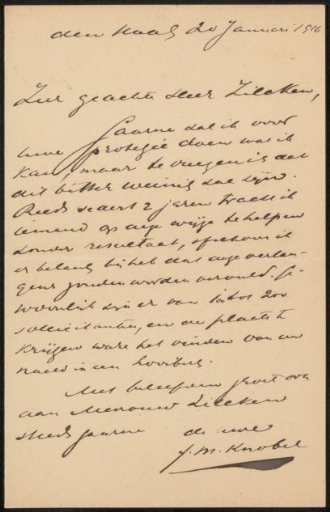 den Haag 20 Januari 1916
Zeer geachte Heer Zilcken,
Gaarne zal ik voor
uwe protégée doen wat ik
kan, maar te vreezen is dat
dit bitter weinig zal zijn.
Reeds sedert 2 jaren tracht ik
iemand op wijze te helpen
zonder resultaat, ofschoon ik
er belang bij heb dat
zouden worden vervuld. Ge-
woonlijk zijn er van 100 tot 200
sollicitanten, en een plaats te
krijgen ware het vinden van een
naald in een hooiberg.
Met beleefden groet ook
aan Mevrouw Zilcken
steeds gaarne
de uwe
J. M. Knobel